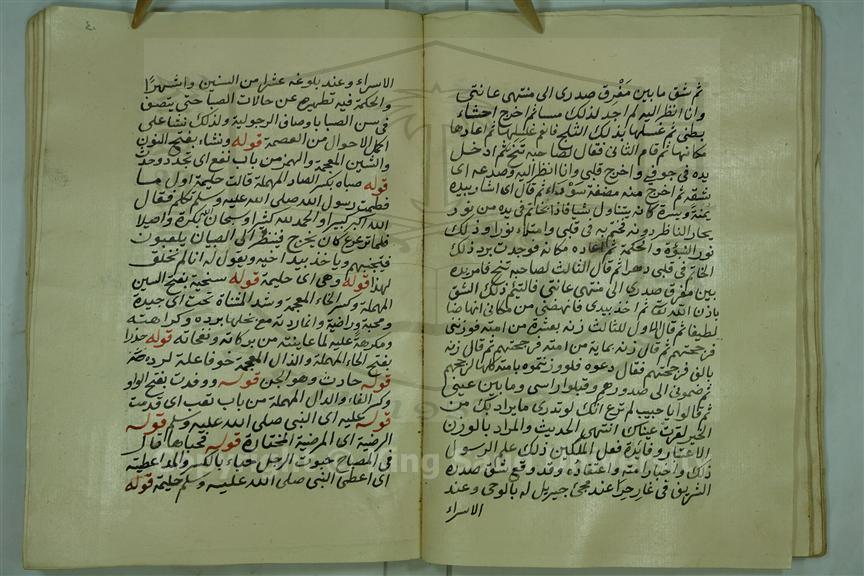 ثم شق ما بين مفرق صدرى الى منتهى عانتى
وانا انظر اليه لم اجد لذلك مسا ثم اخرج احشاء
بطنى ثم غسلها بذلك الثلج فانعم غسلها ثم اعادها
مكانها ثم قام الثانى فقال لصاحبه تنح ثم ادخل
يده فى جوفى واخرج قلبى وانا انظر اليه وصدعه اى
شقه ثم اخرج منه مضغة سوداء ثم قال اى اشار بيده
يمنة ويسرة كانه يتناول شيا فاذا بخاتم فى يده من نور
يحار الناظر دونه فختم به فى قلبى وامتلاء نورا وذلك
نور النبوة والحكمة ثم اعاده مكانه فوجدت برد ذلك
الخاتم فى قلبى دهرا ثم قال الثالث لصاحبه تنح فامر يده
بين مفرق صدرى الى منتهى عانتى فالتئم ذلك الشق
باذن الله تعالى ثم اخذ بيدى فانهضنى من مكانى انهاضا
لطيفا ثم قال الاول للثالث زنه بعشرة من امته فوزننى
فرجحتهم ثم قال زنه بماية من امته فرجحتهم ثم قال زنه
بالف فرجحتهم فقال دعوه فلو وزنتموه بامته كلها لرجحهم
ثم ضمونى الى صدورهم وقبلوا راسى وما بين عينى
ثم قالوا يا حبيب لم ترع انك لو تدرى ما يراد بك من
الخير لقرت عيناك انتهى الحديث والمراد بالوزن
الاعتبار وفائدة فعل الملكين ذلك علم الرسول
ذلك واخبار امته واعتقاده وقد وقع شق صدره
الشريف فى غار حرا عند مجئ جبريل له بالوحى وعند
الاسراء
الاسراء وعند بلوغه عشرا من السنين واشهرا
والحكمة فيه تطهيره عن حالات الصبا حتى يتصف
فى سن الصبا باوصاف الرجولية ولذلك نشا على
اكمل الاحوال من العصمة قوله ونشاء بفتح النون
والشين المعجمة والهمز من باب نفع اى تجدد وحدث
قوله صباه بكسر الصاد المهملة قالت حليمة اول ما
فطمت رسول الله صلى الله عليه وسلم تكلم فقال
الله اكبر كبيرا والحمد لله كثيرا وسبحان الله بكرة واصيلا
فلما ترعرع كان يخرج فينظر الى الصبيان يلعبون
فيتجنبهم وياخذ بيد اخيه ويقول له انا لم نخلق
لهذا قوله وهى اى حليمة قوله سخية بفتح السين
المهملة وكسر الخاء المعجمة وشد المثناة تحت اى جيدة
ومحبة وراضية وانما ردته مع بخلها برده وكراهته
ومكرهة عليه لما عاينته من بركاته ونفحاته قوله حذرا
بفتح الحاء المهملة والذال المعجمة خوفا علة لرده
قوله حادث وهو الجن قوله ووفدت بفتح الواو
وكسر الفاء والدال المهملة من باب تعب اى قدمت
قوله عليه اى النبى صلى الله عليه وسلم قوله
الرضية اى المرضية المختارة قوله فحباها قال
فى المصباح حبوت الرجل حباء بالكسر والمد اعطيته
اى اعطى النبى صلى الله عليه وسلم حليمة قوله